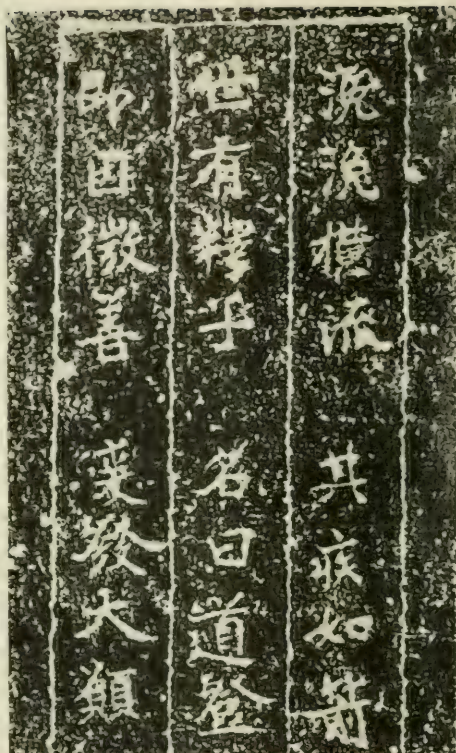 浼浼横流　其疾如箭
世有釋子　名曰道登
即因微善　爰發大願